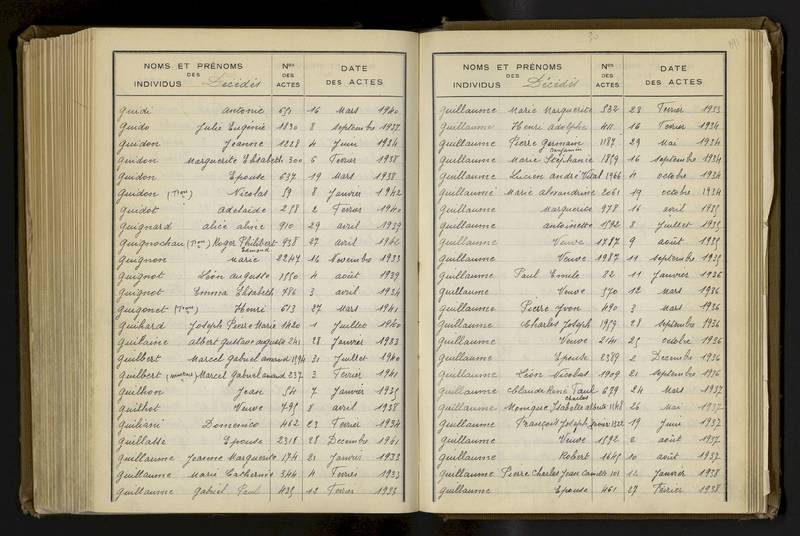 NOMS ET PRÉNOMS
DES
INDIVIDUS Décédés
Nos
DES
ACTES
DATE
DES ACTES
Guidi Antonie 651 16 Mars 1940
Guido Julie Eugénie 1830 8 Septembre 1937
Guidon Jeanne 1228 4 Juin 1934
Guidon Marguerite Elisabeth 300 6 Février 1938
Guidon Epouse 637 19 Mars 1938
Guidon Nicolas 59 8 Janvier 1942
Guidot Adelaïde 258 2 Février 1940
Guignard Alice Aline 910 29 Avril 1939
Guignochau Roger Philibert Edmond 938 27 Avril 1942
Guignon Marie 2247 16 Novembre 1933
Guignot Léon Auguste 1550 4 Août 1939
Guignot Emma Elisabeth 786 3 Avril 1934
Guigonet Henri 673 27 Mars 1941
Guihard Joseph Pierre Marie 1420 1 Juillet 1940
Guilaine Albert Gustave Auguste 241 28 Janvier 1933
Guilbert Marcel Gabriel Amand 1594 31 Juillet 1940
Guilbert Marcel Gabriel Amand 237 3 Février 1941
Guilhon Jean 54 7 Janvier 1935
Guilhot Veuve 795 8 Avril 1938
Guiliani Domenico 462 23 Février 1934
Guillasse Epouse 2318 28 Décembre 1941
Guillaume Jeanne Marguerite 174 21 Janvier 1933
Guillaume Marie Catherine 344 4 Février 1933
Guillaume Gabriel Paul 435 12 Février 1933
30
NOMS ET PRÉNOMS
DES
INDIVIDUS Décédés
Nos
DES
ACTES
DATE
DES ACTES
Guillaume Marie Marguerite 532 23 Février 1933
Guillaume Henri Adolphe 411 16 Février 1934
Guillaume Pierre Germain Benjamin 1187 29 Mai 1934
Guillaume Marie Stéphanie 1859 16 Septembre 1934
Guillaume Lucien André Vital 1966 4 Octobre 1934
Guillaume Marie Alexandrine 2061 19 Octobre 1934
Guillaume Marguerite 978 16 Avril 1935
Guillaume Antoinette 1592 8 Juillet 1935
Guillaume Veuve 1787 9 Août 1935
Guillaume Veuve 1987 11 Septembre 1935
Guillaume Paul Emile 82 11 Janvier 1936
Guillaume Veuve 570 12 Mars 1936
Guillaume Pierre Yvon 490 3 Mars 1936
Guillaume Charles Joseph 1959 28 Septembre 1936
Guillaume Veuve 2141 25 Octobre 1936
Guillaume Epouse 2389 2 Décembre 1936
Guillaume Léon Nicolas 1909 21 Septembre 1936
Guillaume Claude René Paul Charles 679 24 Mars 1937
Guillaume Monique Isabelle Alberte 1148 26 Mai 1937
Guillaume François Joseph 1322 19 Juin 1937
Guillaume Veuve 1592 2 Août 1937
Guillaume Robert 1645 10 Août 1937
Guillaume Pierre Charles Jean Camille 101 12 Janvier 1938
Guillaume Epouse 461 27 Février 1938